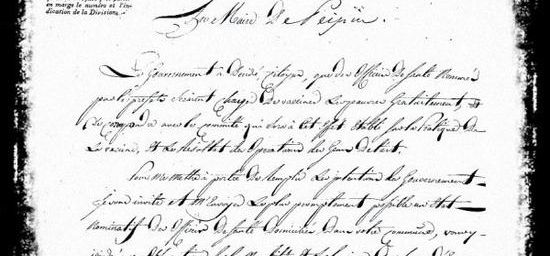 en marge le numéro et l'in-
dication de la Division.
Au Maire De Peipin.
Le Gouvernement a Décidé, Citoyen, que des Officiers De Santé Nommés
par les préfets seraient chargés De vacciner Les pauvres Gratuitement, et
De correspondre avec le comité qui sera à cet effet établi sur la Pratique De
La vaccine, et Les Résultats des Opérations des Gens De l'art.
Pour me mettre à portée De Remplir Les intentions du Gouvernement
je vous invite à M'Envoyer Le plus promptement possible un État
Nominatif des Officiers De Santé Domiciliés Dans votre commune,